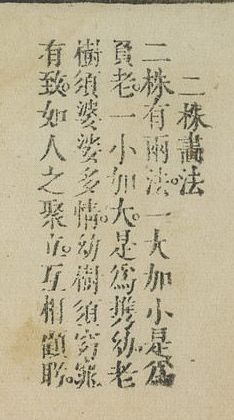 二株畫法
二株有兩法。一大加小是爲
負老。一小加大。是爲攜幼。老
樹須婆娑多情。幼樹須窈窕
有致。如人之聚立。互相顧盼。